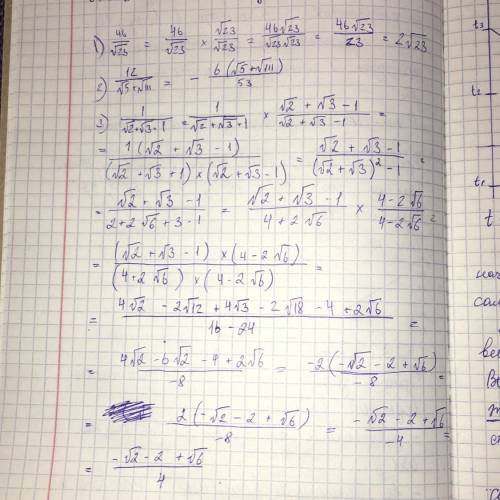 1) 46/√23 = 46/√23 × √23/√23 = 46√23/√23√23 = 46√23/23 = 2√23
2) 12/√5+√111 = - 6(√5+√111)/53
3) 1/√2+√3+1 = 1/√2+√3+1 × √2+√3-1/√2+√3-1 =
= 1(√2+√3-1)/(√2+√3+1)×(√2+√3-1) = √2+√3-1/(√2+√3)²-1 =
= √2+√3-1/2+2√6+3-1 = √2+√3-1/4+2√6 × 4-2√6/4-2√6 =
= (√2+√3-1)×(4-2√6)/(4+2√6)×(4-2√6) =
= 4√2-2√12+4√3-2√18-4+2√6/16-24 =
= 4√2-6√2-4+2√6/-8 = -2(-√2-2+√6)/-8 =
= 2(-√2-2+√6)/-8 = -√2-2+√6/-4 =
= -√2-2+√6/4
t₃
t₂
t₁
t
нач